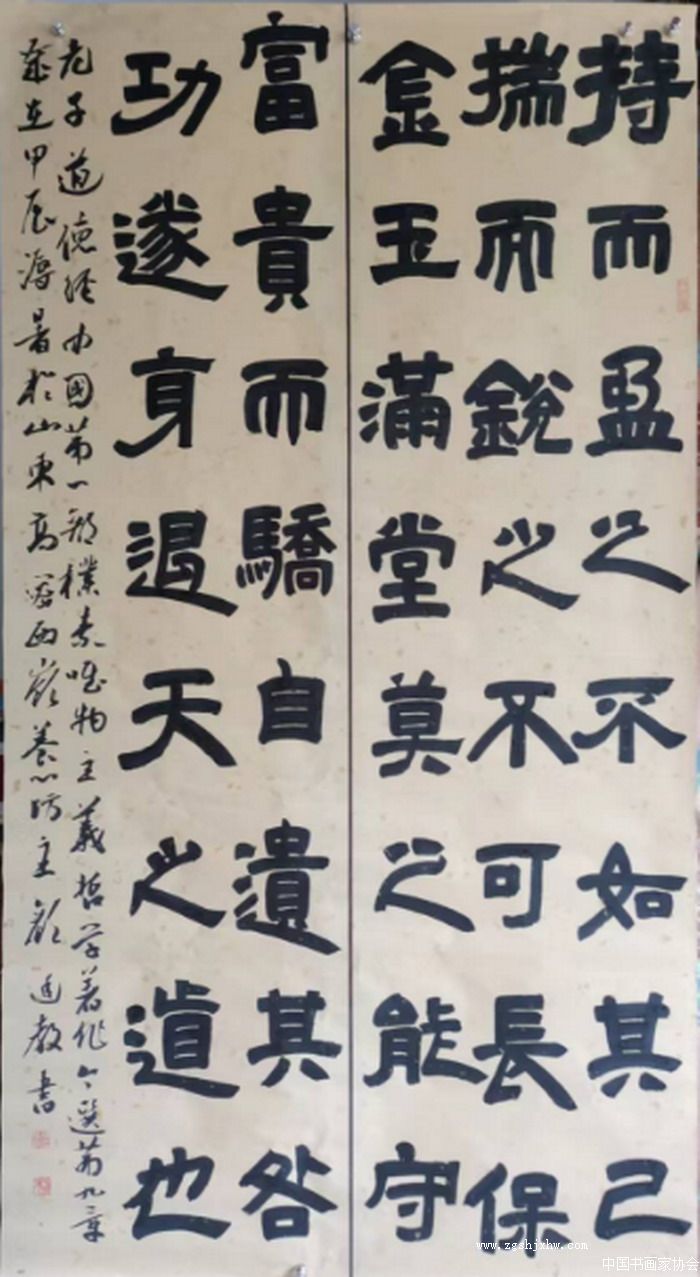 持而盈之不如其已
揣而銳之不可長保
金玉滿堂莫之能守
富貴而驕自遺其咎
功遂身退天之道也
老子道德经中國第一部樸素唯物主義哲学著作今選第九章
歲在甲辰溽暑於山東高密西 養心坊主 廷教書
www.zgshjxhw.com
中国书画家协会